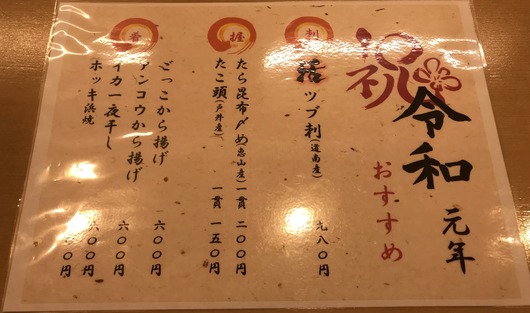 祝
令和
元年
おすすめ
刺
活ツブ刺(道南産) 九八〇円
握
たら昆布〆め(恵山産)一貫 二〇〇円
たこ頭(戸井産) 一貫 一五〇円
肴
ごっこから揚げ 六〇〇円
アンコウから揚げ
イカ一夜干し 六〇〇円
ホッキ浜焼 六〇〇円
〇円